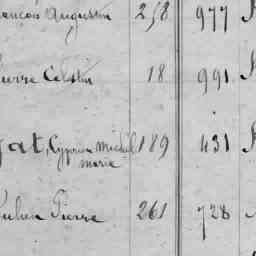 ançois Augustin 258 977
ierre Célestin 18 991
gat, Cyprien Michel 189 431
marie
Julien Pierre 261 728